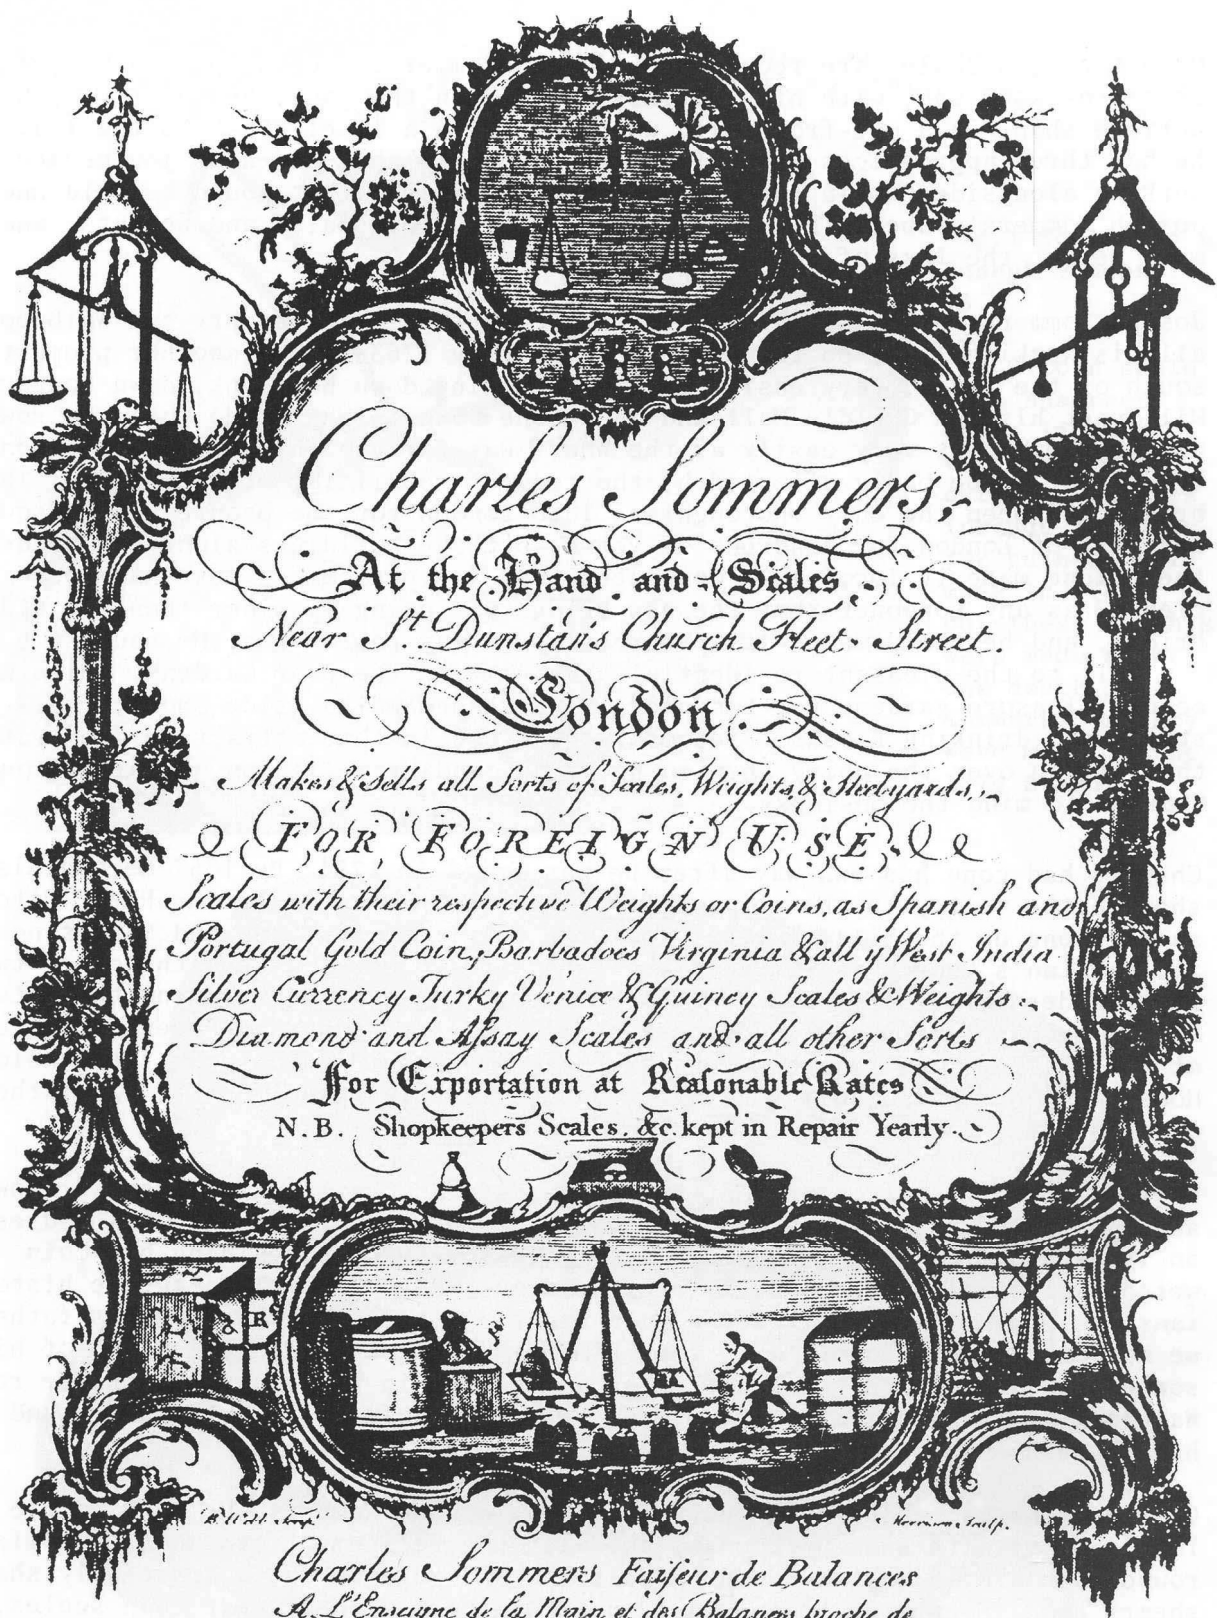 Charles Sommers,
At the Hand and Scales
Near St. Dunstan's Church Fleet Street.
London
Makes & Sells all Sorts of Scales, Weights, & Steelyards,
FOR FOREIGN USE.
Scales with their respective Weights or Coins, as Spanish and
Portugal Gold Coin, Barbadoes Virginia & all ye West India
Silver Currency Turky Venice & Guiney Scales & Weights
Diamond and Assay Scales and all other Sorts
For Exportation at Reasonable Rates
N.B. Shopkeepers Scales, &c. kept in Repair Yearly.
R
Sculp.
Charles Sommers Faiseur de Balances
A L'Enseigne de la Main et des Balances proche de